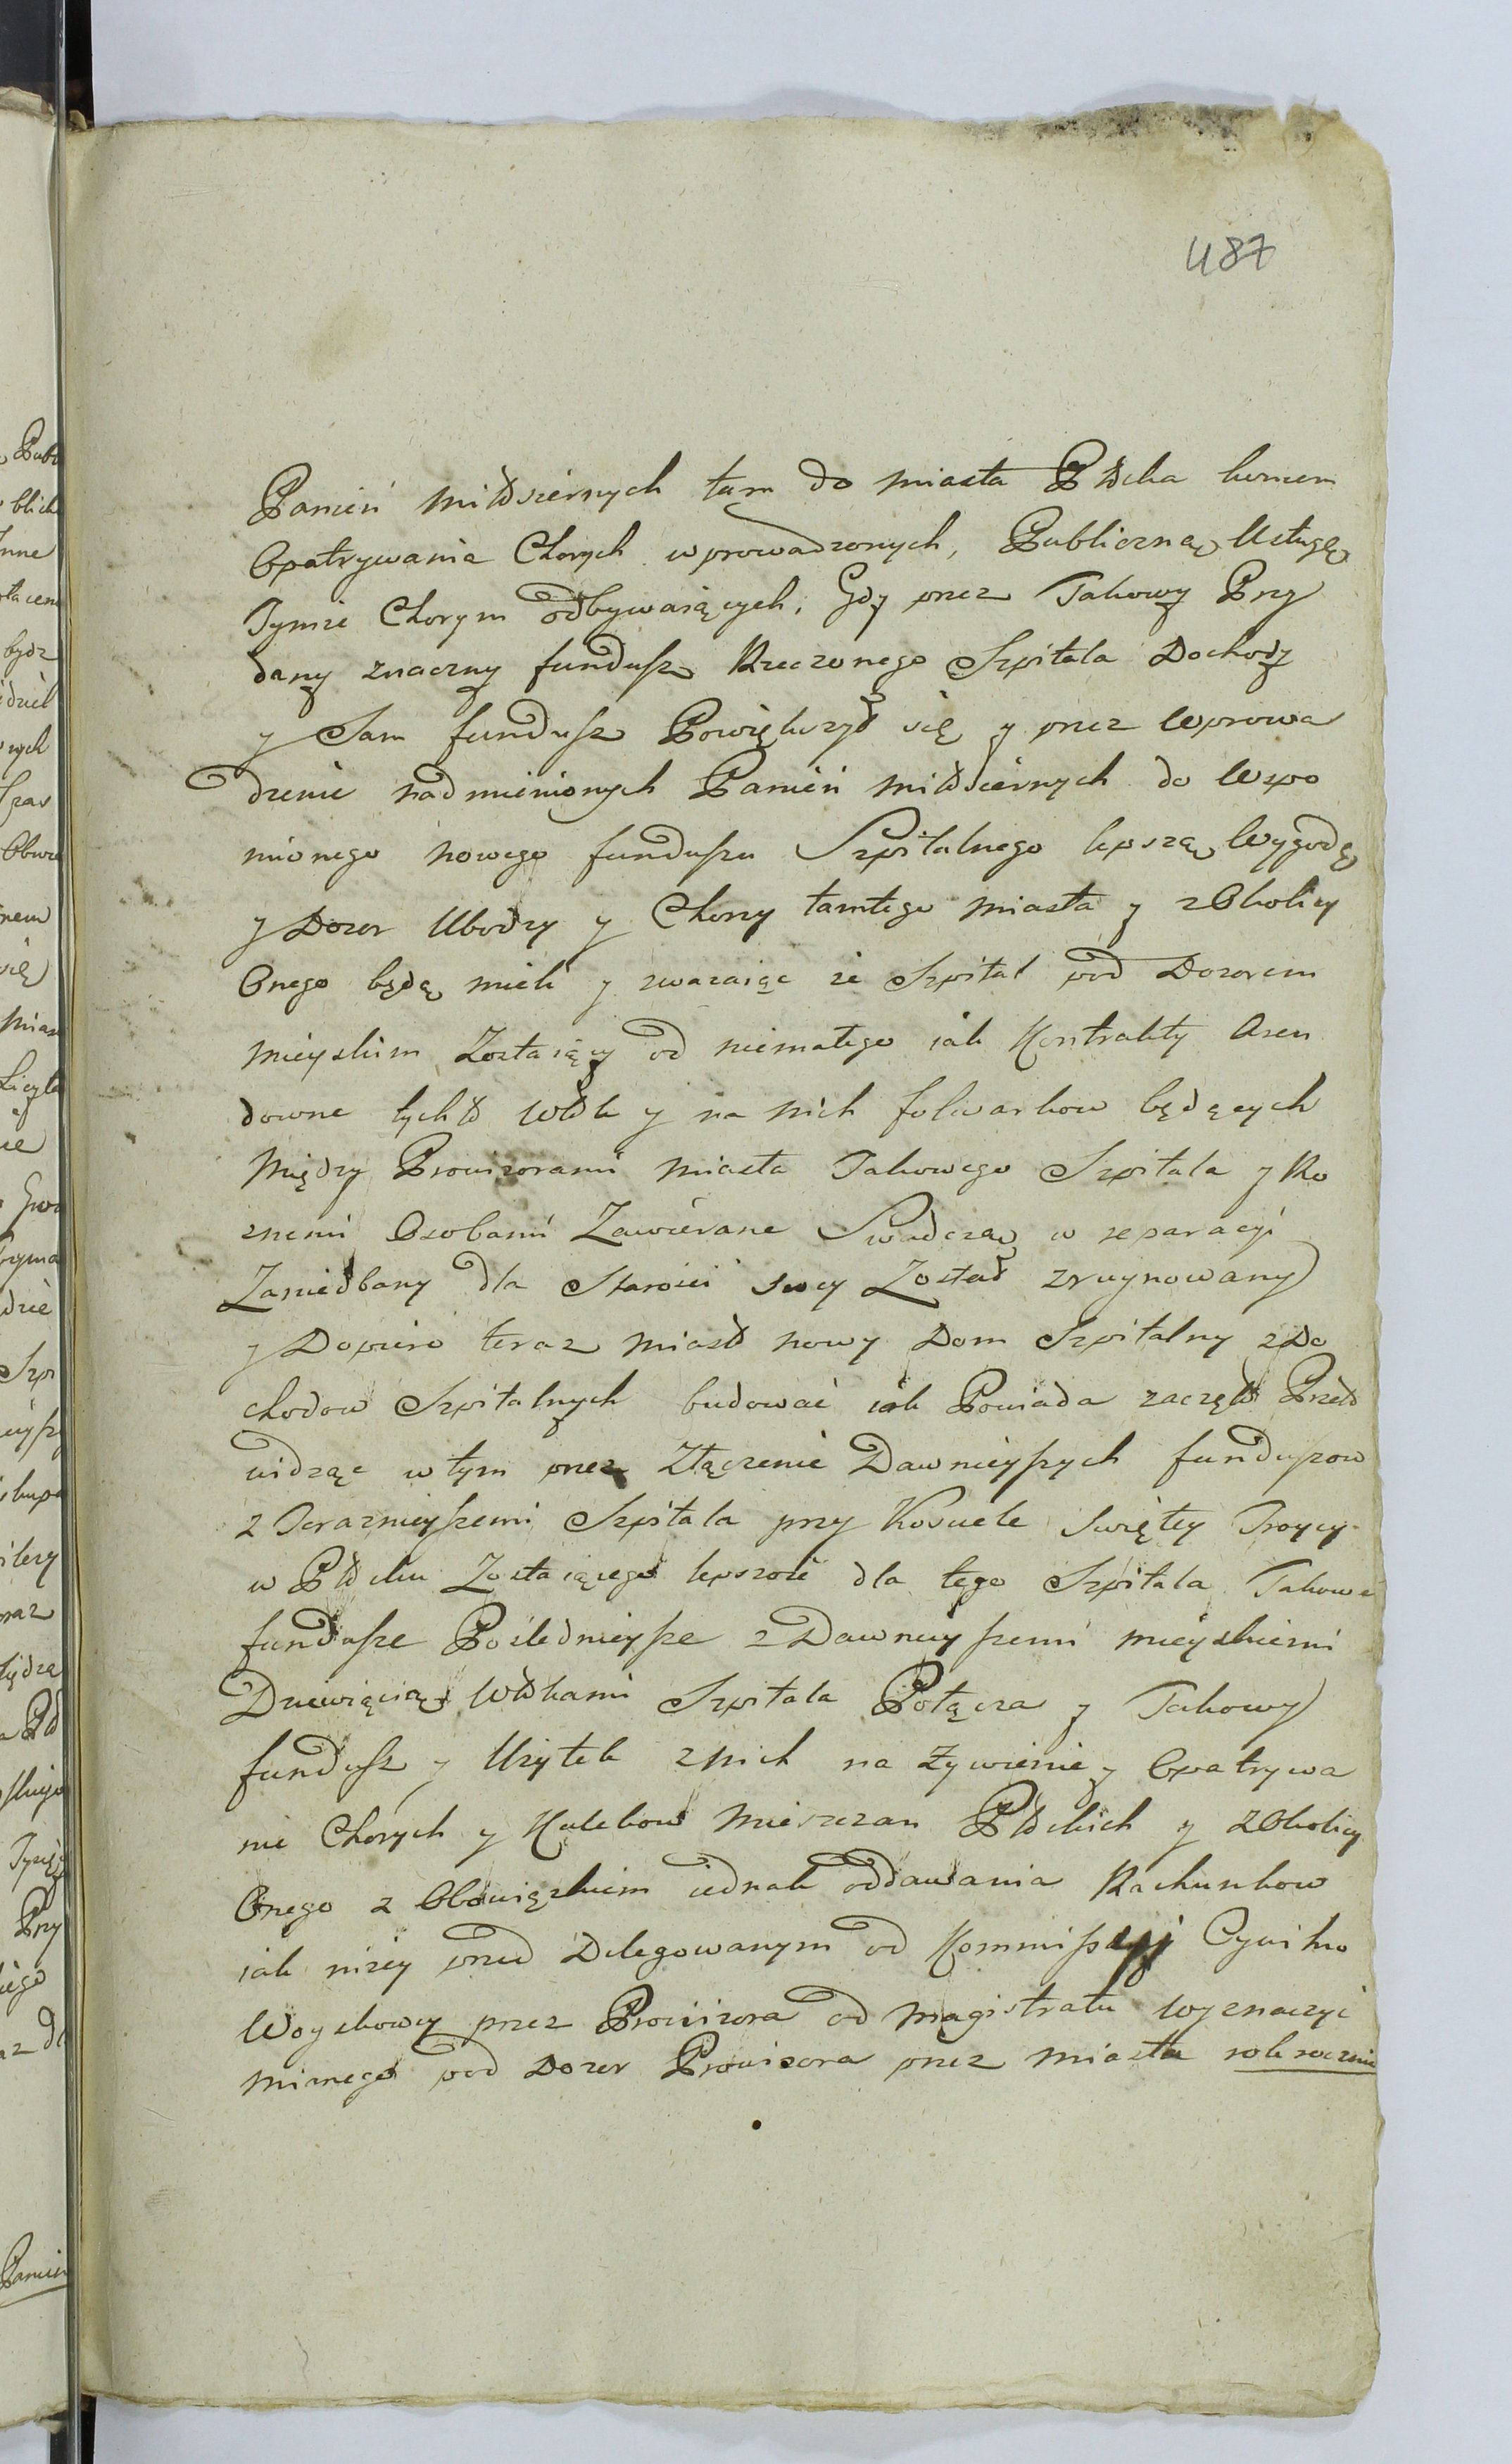 487
Panien Miłsiernych tam do Miasta Płcka koncem
Opatrywania Chorych wprowadzonych, Publiczną Usługę
Tymże Chorym odbywaiących, Gdy przez Takowy Przy
dany znaczny fundusz Rzeczonego Szpitala Dochody
y Sam fundusz Powiększył się y przez Wprowa
dzenie nadmienionych Panien Miłsiernych do Wspo
mionego nowego funduszu Szpitalnego lepszą Wygodę
y Dozor Ubodzy y Chorzy tamtego Miasta y z Okolicy
Onego będą mieli y zwazaiąc że Szpital pod Dozorem
Mieyskim Zostaiący od niemałego iak Kontrakty Aren
downe tychż Włok y na nich folwarkow będących
Między Prowizorami Miasta Takowego Szpitala y Ro
znemi Osobami Zawierane Swiadczą w reparacyi
Zaniedbany dla Starości swey Został zruynowany
y Dopiero teraz Miasto nowy Dom Szpitalny z Do
chodow Szpitalnych budować iak Powiada zaczęło Przeto
widząc w tym przez Złączenie Dawnieyszych funduszow
z Teraznieyszemi Szpitala przy Kosciele Swiętey Troycy
w Płcku Zostaiącego lepszość dla tego Szpitala Takowe
fundusze Poślednieysze z Dawnieyszemi mieyskiemi
Dziewięcią Włókami Szpitala Połącza y Takowy
fundusz y Użytek z nich na Zywienie y Opatrywa
nie Chorych y Kalekow Mieszczan Płckich y z Okolicy
Onego z Obowiązkiem iednak oddawania Rachunkow
iak niżey przed Delegowanym od Kommissyi Cywilno
Woyskowey przez Prowizora od Magistratu Wyznaczyć
mianego pod Dozor Prowizora przez Miasto rok rocznie